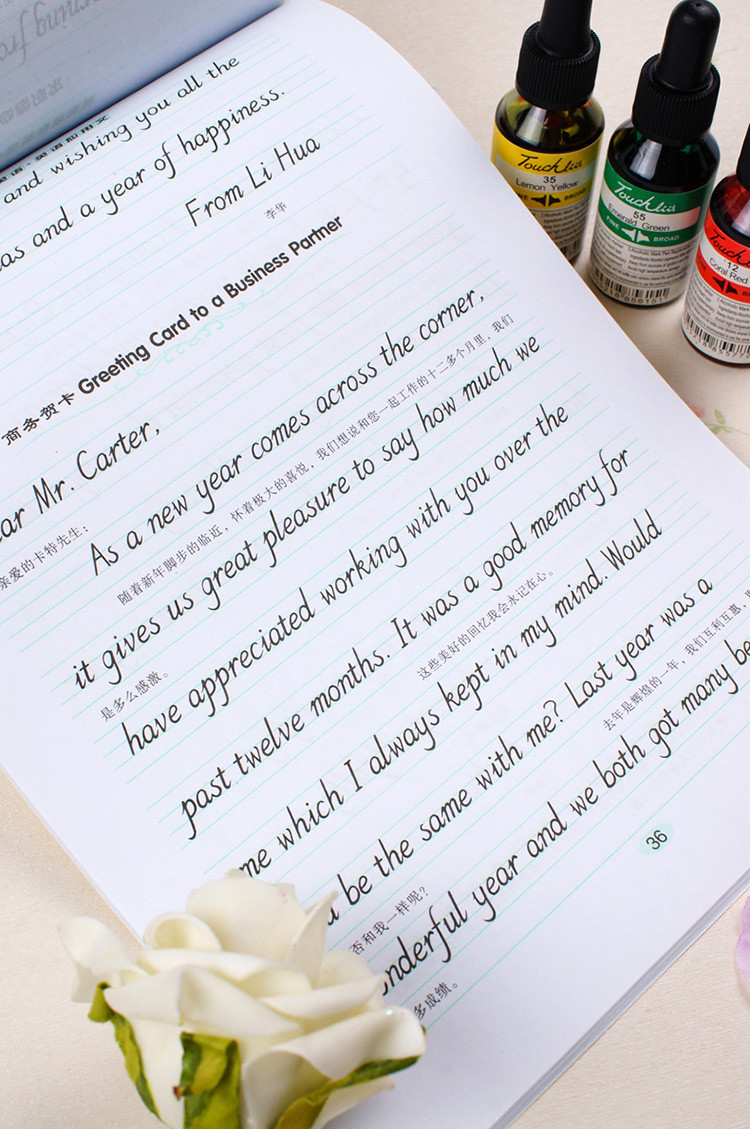 and wishing you all the
as and a year of happiness.
From Li Hua
李华
商务贺卡 Greeting Card to a Business Partner
ar Mr. Carter,
亲爱的卡特先生：
As a new year comes across the corner,
随着新年脚步的临近，怀着极大的喜悦，我们想说和您一起工作的十二多个月里，我们
it gives us great pleasure to say how much we
是多么感激。
have appreciated working with you over the
past twelve months. It was a good memory for
这些美好的回忆我会永记在心。
me which I always kept in my mind. Would
be the same with me? Last year was a
否和我一样呢？
去年是辉煌的一年，我们互利互惠，
nderful year and we both got many be
多成绩。
36
Touchliit
35
Lemon Yellow
FINE BROAD
Touchliit
55
Emerald Green
FINE BROAD
Touch
12
Coral Red
FINE